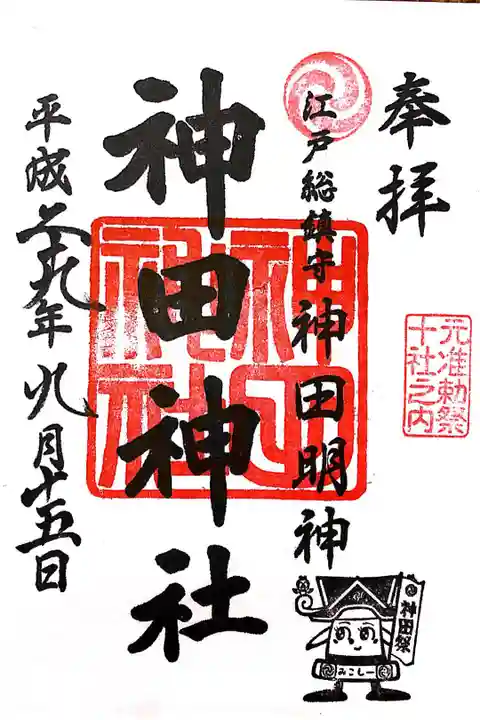 奉拝
元准勅祭
十社之内
江戸総鎮守 神田明神
神田神社
神田神社
平成二十九年九月十五日
神田祭
みこしー